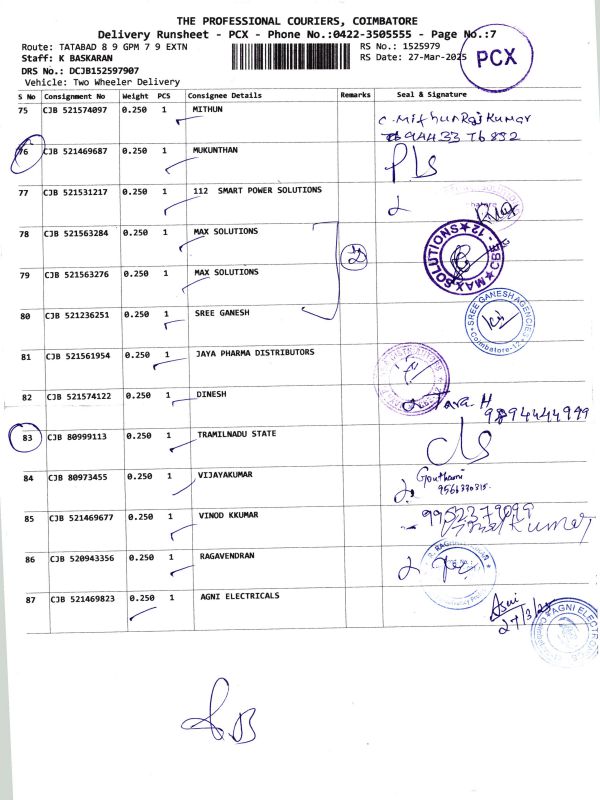 THE PROFESSIONAL COURIERS, COIMBATORE
Delivery Runsheet - PCX - Phone No.:0422-3505555 - Page No.:7
Route: TATABAD 8 9 GPM 7 9 EXTN RS No.: 1525979
Staff: K BASKARAN RS Date: 27-Mar-2025
PCX
DRS No.: DCJB152597907
Vehicle: Two Wheeler Delivery
S No Consignment No Weight PCS Consignee Details Remarks Seal & Signature
75 CJB 521574097 0.250 1 MITHUN C. MithunRajKumar
76 CJB 521469687 0.250 1 MUKUNTHAN
77 CJB 521531217 0.250 1 112 SMART POWER SOLUTIONS
78 CJB 521563284 0.250 1 MAX SOLUTIONS MAX SOLUTIONS CBE - 12
79 CJB 521563276 0.250 1 MAX SOLUTIONS
80 CJB 521236251 0.250 1 SREE GANESH SREE GANESH AGENCIES Coimbatore-12
81 CJB 521561954 0.250 1 JAYA PHARMA DISTRIBUTORS
82 CJB 521574122 0.250 1 DINESH Tara. H
9894444999
83 CJB 80999113 0.250 1 TRAMILNADU STATE
84 CJB 80973455 0.250 1 VIJAYAKUMAR Gouthami
85 CJB 521469677 0.250 1 VINOD KKUMAR 9952379099
86 CJB 520943356 0.250 1 RAGAVENDRAN
87 CJB 521469823 0.250 1 AGNI ELECTRICALS Agni
27/3/25